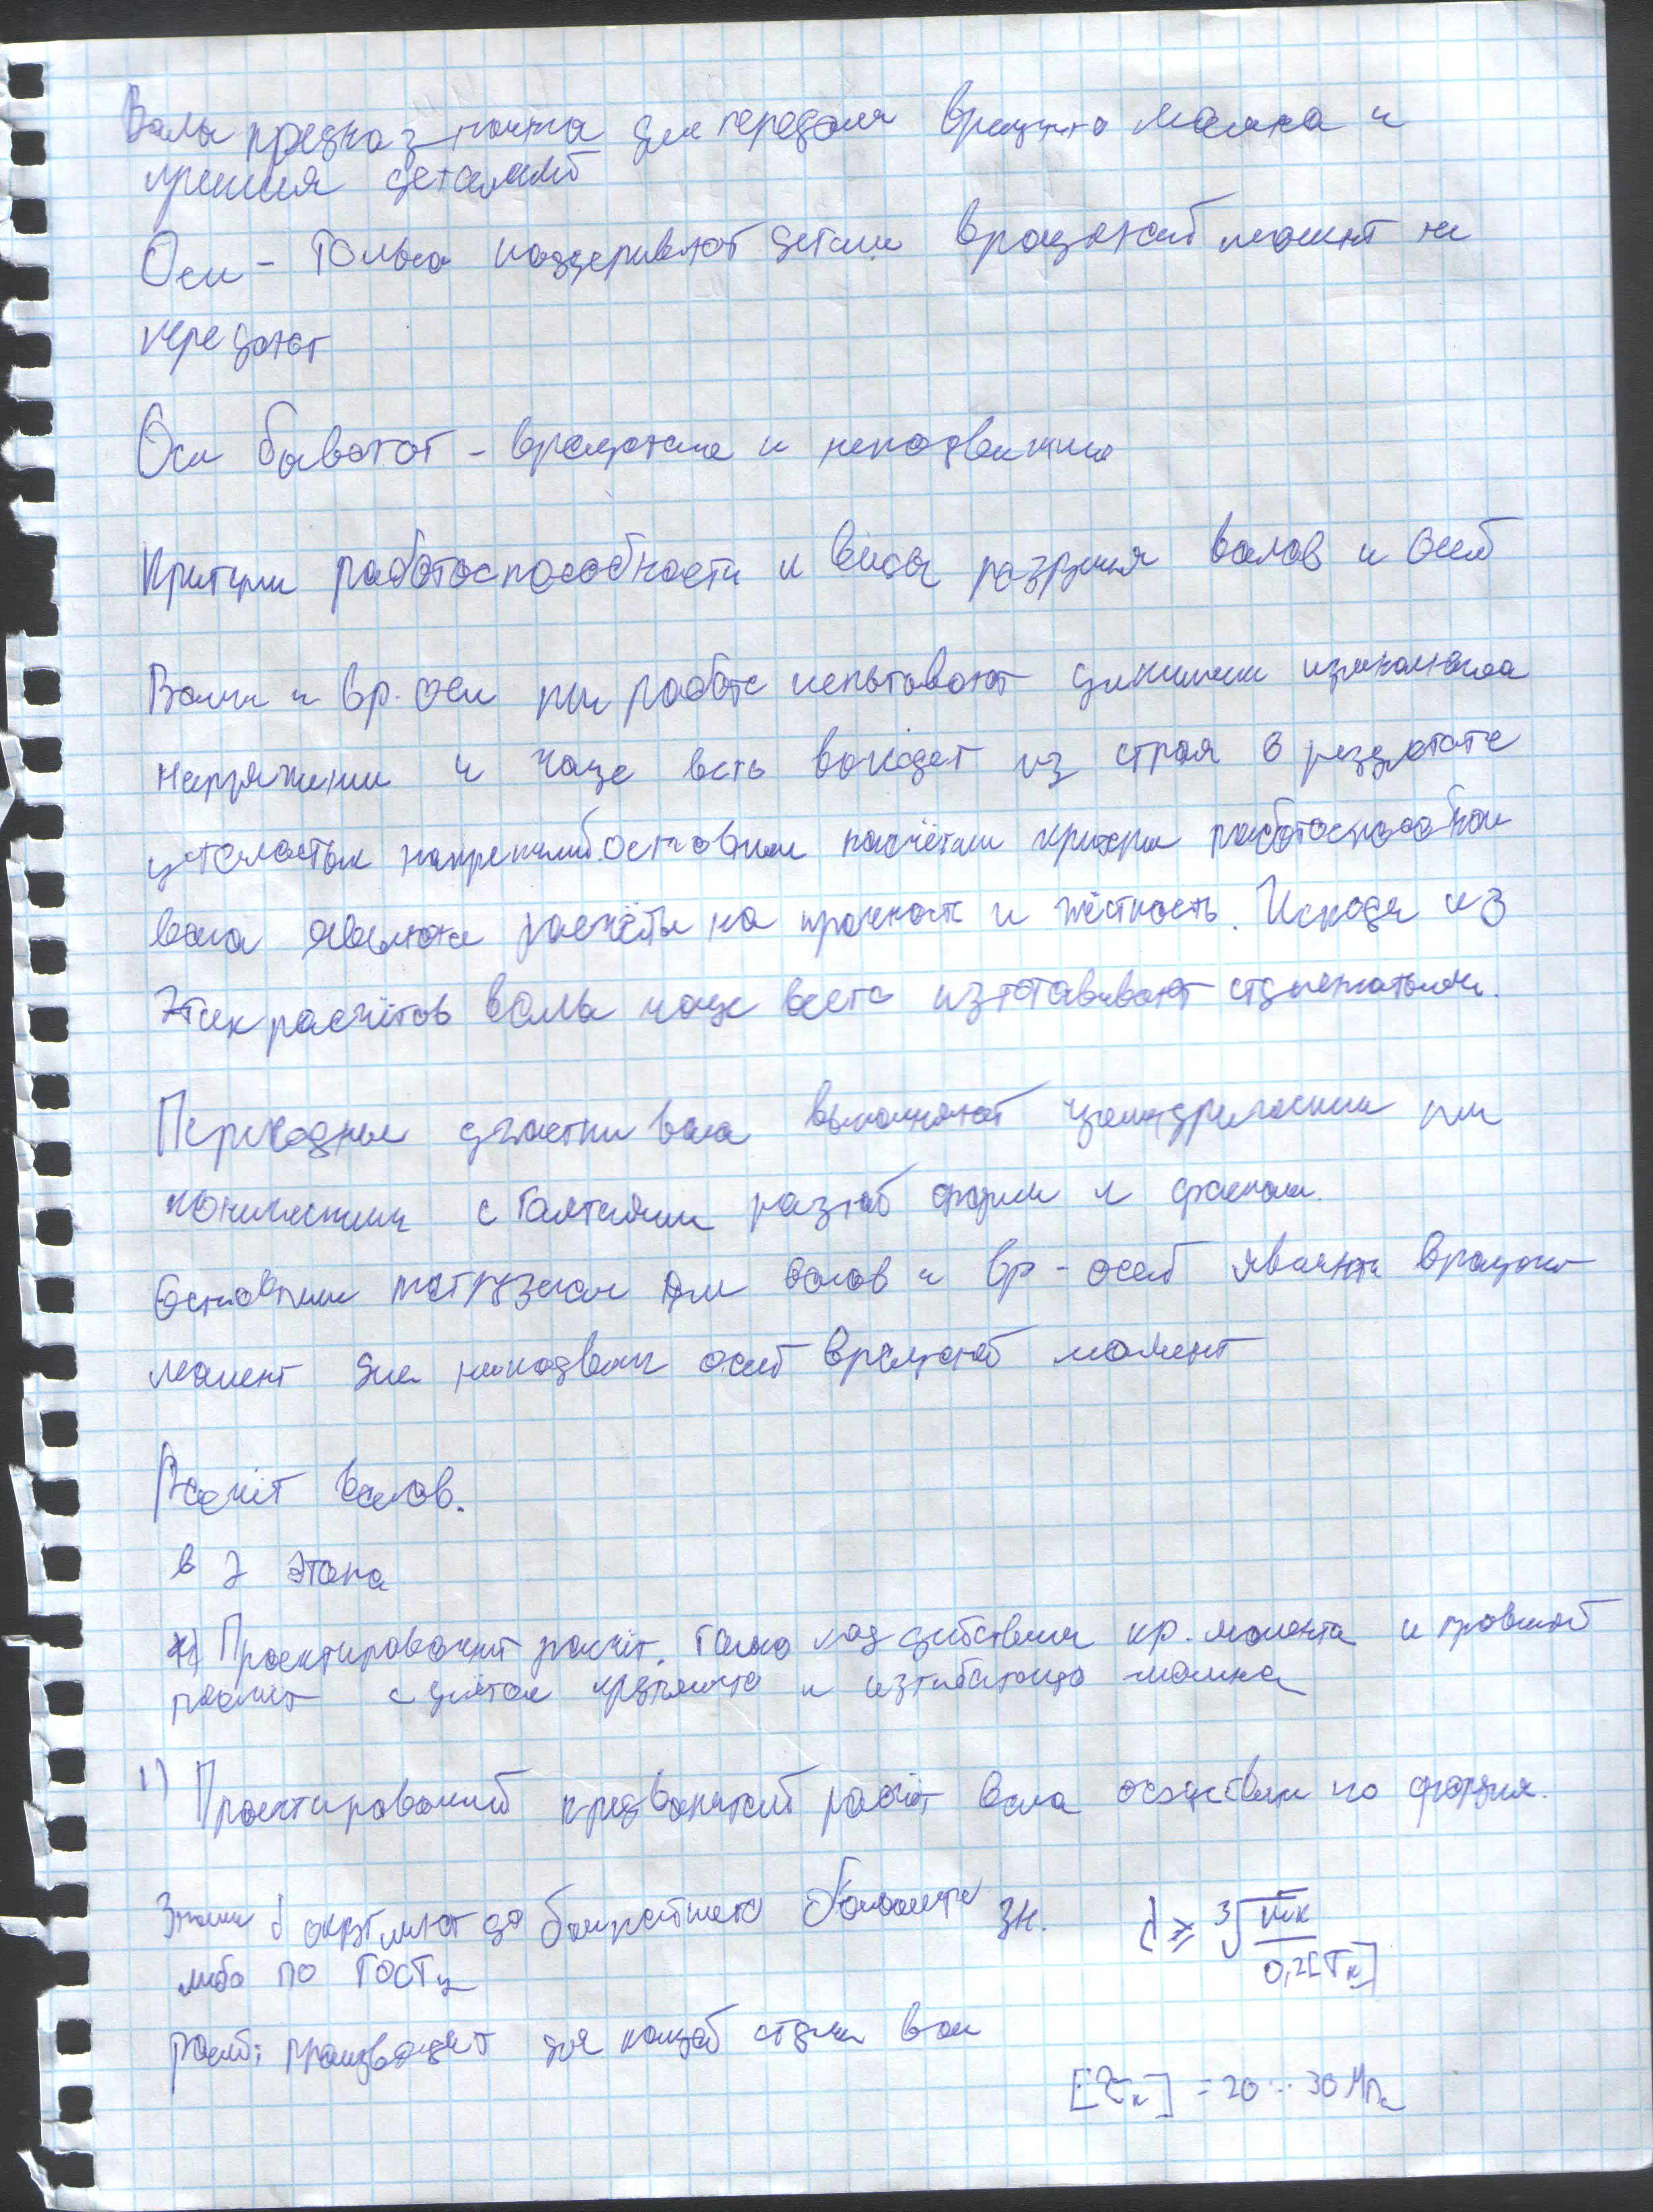 Валы предназ_начна для передачи вращущю момена и
 деталей
Оси – только поддеривают детали вращающй момент не
передают
Оси бывают – вращающие и неподвижние
Критери работоспособности и виды разрушня валов и осей
Валы и вр. оси при работе испытовают циклически изменяющиеся
напряжения и чаще всего выходят из строя в результате
усталостых напряжений. основным расчётам критери работоспособнои
вала являются расчёты на прочность и жёсткость. Исходя из
этих расчётов валы чаще всего изготавивают ступенчатыми.
Переходные участки вала выполняют цилиндрическим или
коническими с галтелями разной формы и фасками.
Основными нагрузками для валов и вр – осей являются вращающ
момент для неподвижн осей вращающй момент
Расчёт валов.
в 2 этапа
Проектировочний расчёт. Только под действием кр. момента и
расчет с учётом крутящего и изгибающего момена
1) Проектировочний расчёт вала осуществим по формуле.
Значен d округляют до ближайшего большего зн. d ≥ ∛ Mк / 0,2[τк]
либо по ГОСТу
Расчёт производят для каждой ступни вала
[τк] = 20...30 МПа